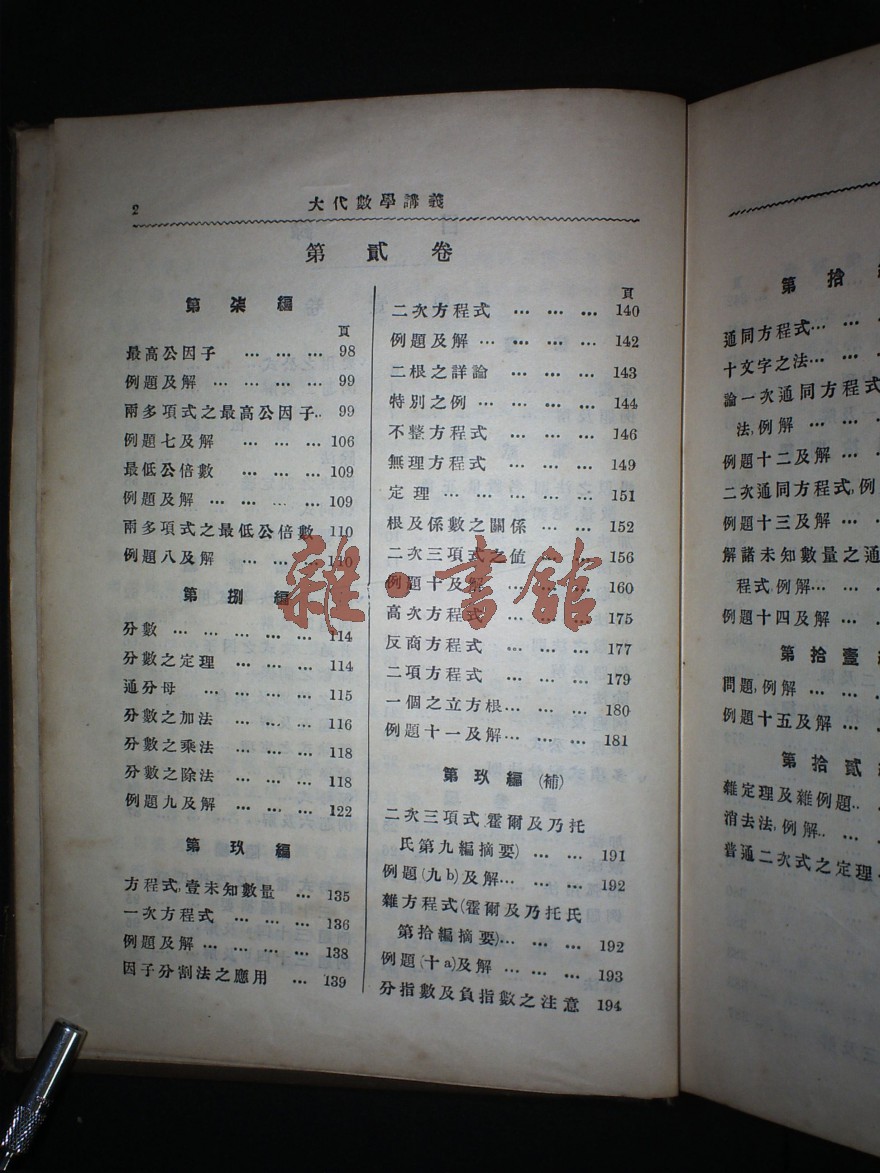 2
大代數學講義
第貳卷
第柒編
頁
最高公因子 … … … 98
例題及解 … … … … 99
兩多項式之最高公因子.. 99
例題七及解 … … … 106
最低公倍數 … … … 109
例題及解 … … … … 109
兩多項式之最低公倍數 110
例題八及解 … … … 110
第捌編
分數 … … … … … 114
分數之定理 … … … 114
通分母 … … … … 115
分數之加法 … … … 116
分數之乘法 … … … 118
分數之除法 … … … 118
例題九及解 … … … 122
第玖編
方程式,壹未知數量 … 135
一次方程式 … … … 136
例題及解… … … … 138
因子分割法之應用 … 139
頁
二次方程式 … … … 140
例題及解… … … … 142
二根之詳論 … … … 143
特別之例… … … … 144
不整方程式 … … … 146
無理方程式 … … … 149
定理… … … … … 151
根及係數之關係… … 152
二次三項式之值… … 156
例題十及解… … … 160
高次方程式 … … … 175
反商方程式 … … … 177
二項方程式 … … … 179
一個之立方根… … … 180
例題十一及解… … … 181
第玖編(補)
二次三項式 霍爾及乃托
氏第九編摘要) … … 191
例題(九b)及解… … … 192
雜方程式(霍爾及乃托氏
第拾編摘要)… … … 192
例題(十a)及解 … … … 193
分指數及負指數之注意 194
第拾
通同方程式… …
十文字之法… … …
論一次通同方程式
法,例解 … … …
例題十二及解… …
二次通同方程式,例
例題十三及解… …
解諸未知數量之通
程式,例解… … …
例題十四及解… …
第拾壹
問題,例解 … … …
例題十五及解… …
第拾貳
雜定理及雜例題..
消去法,例解.. …
普通二次式之定理
雜·書館